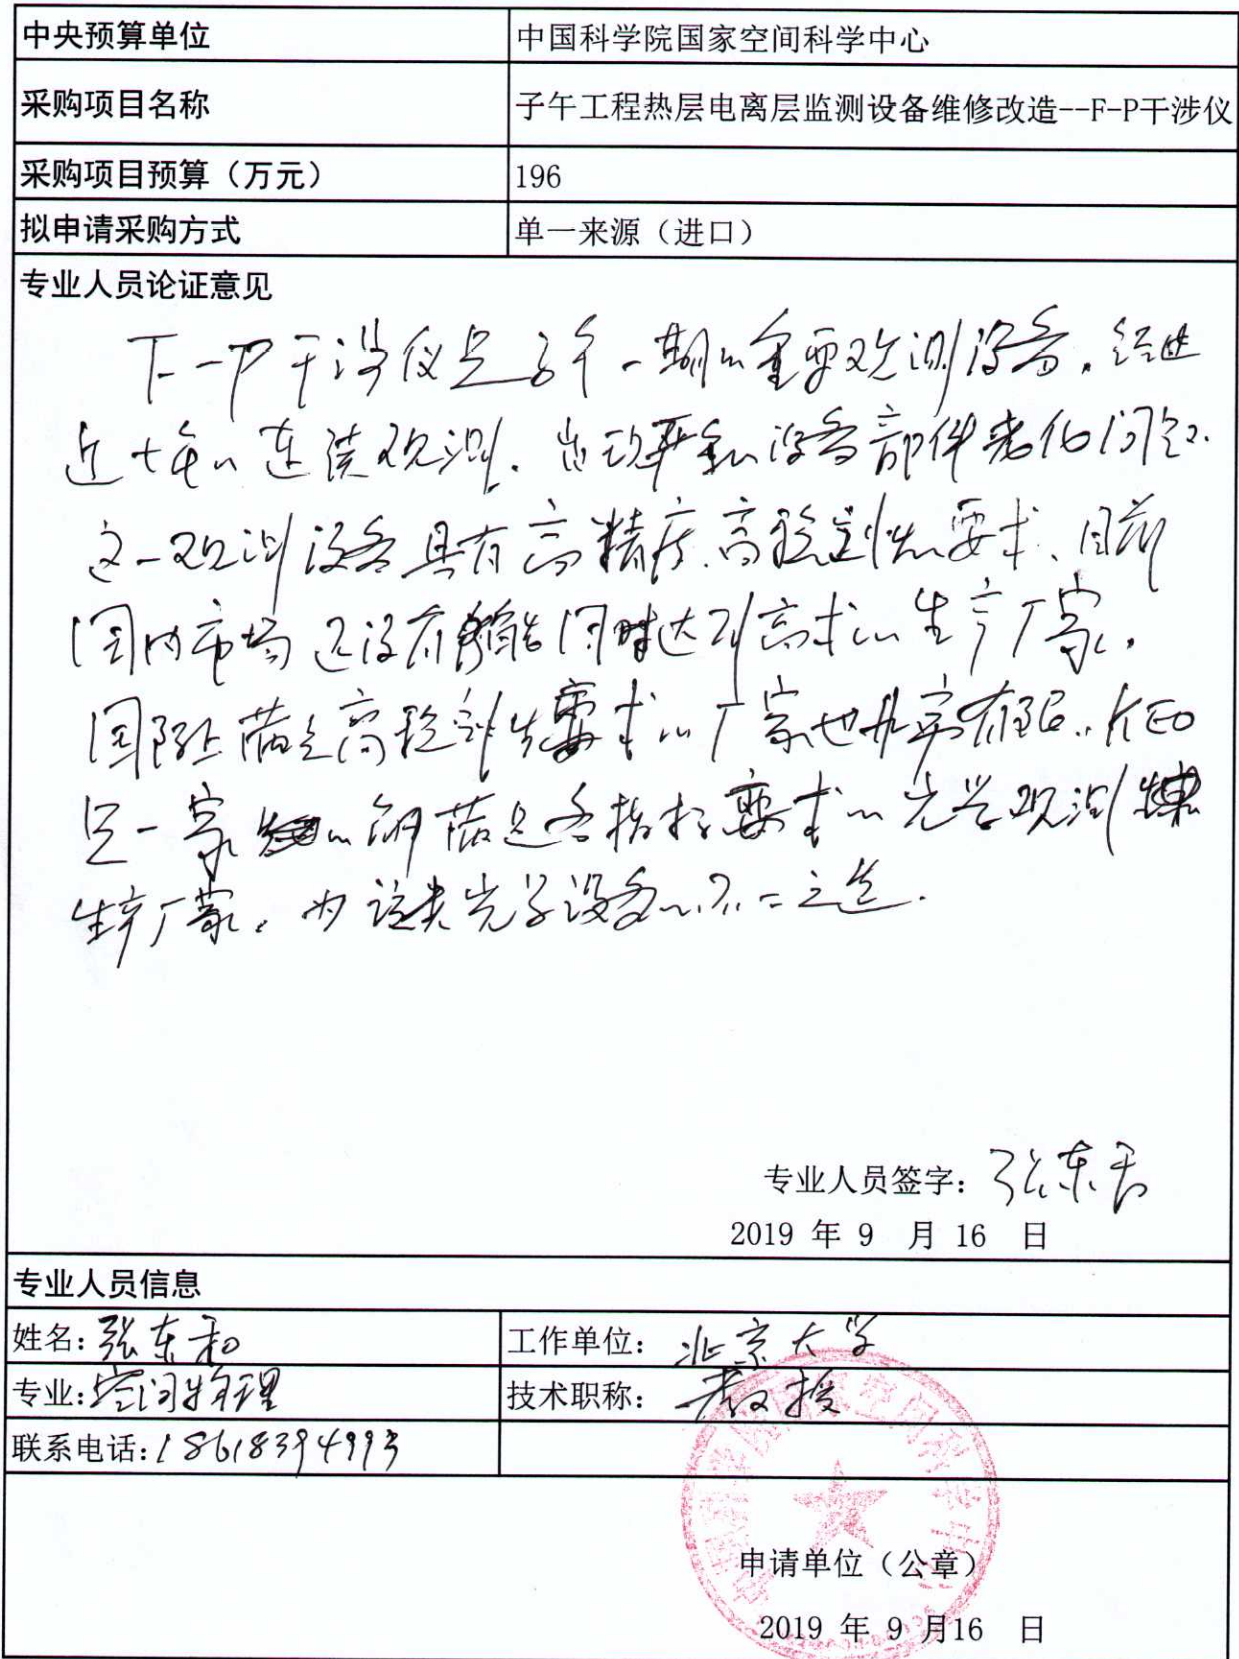 中央预算单位 中国科学院国家空间科学中心
采购项目名称 子午工程热层电离层监测设备维修改造--F-P干涉仪
采购项目预算（万元） 196
拟申请采购方式 单一来源（进口）
专业人员论证意见
F-P干涉仪是子午一期的重要观测设备，经过
近十年的连续观测，出现严重的设备部件老化问题.
这一观测设备具有高精度、高稳定性的要求、目前
国内市场还没有能同时达到高求的生产厂家，
国际上满足高稳定性要求的厂家也非常有限，KEO
是一家能满足各指标要求的光学观测
生产厂家，为该类光学设备的不二之选.
专业人员签字：张东和
2019 年 9 月 16 日
专业人员信息
姓名：张东和 工作单位：北京大学
专业：空间物理 技术职称：教授
联系电话：18618394993
中国科学院国家空间科学中心
申请单位（公章）
2019 年 9 月16 日